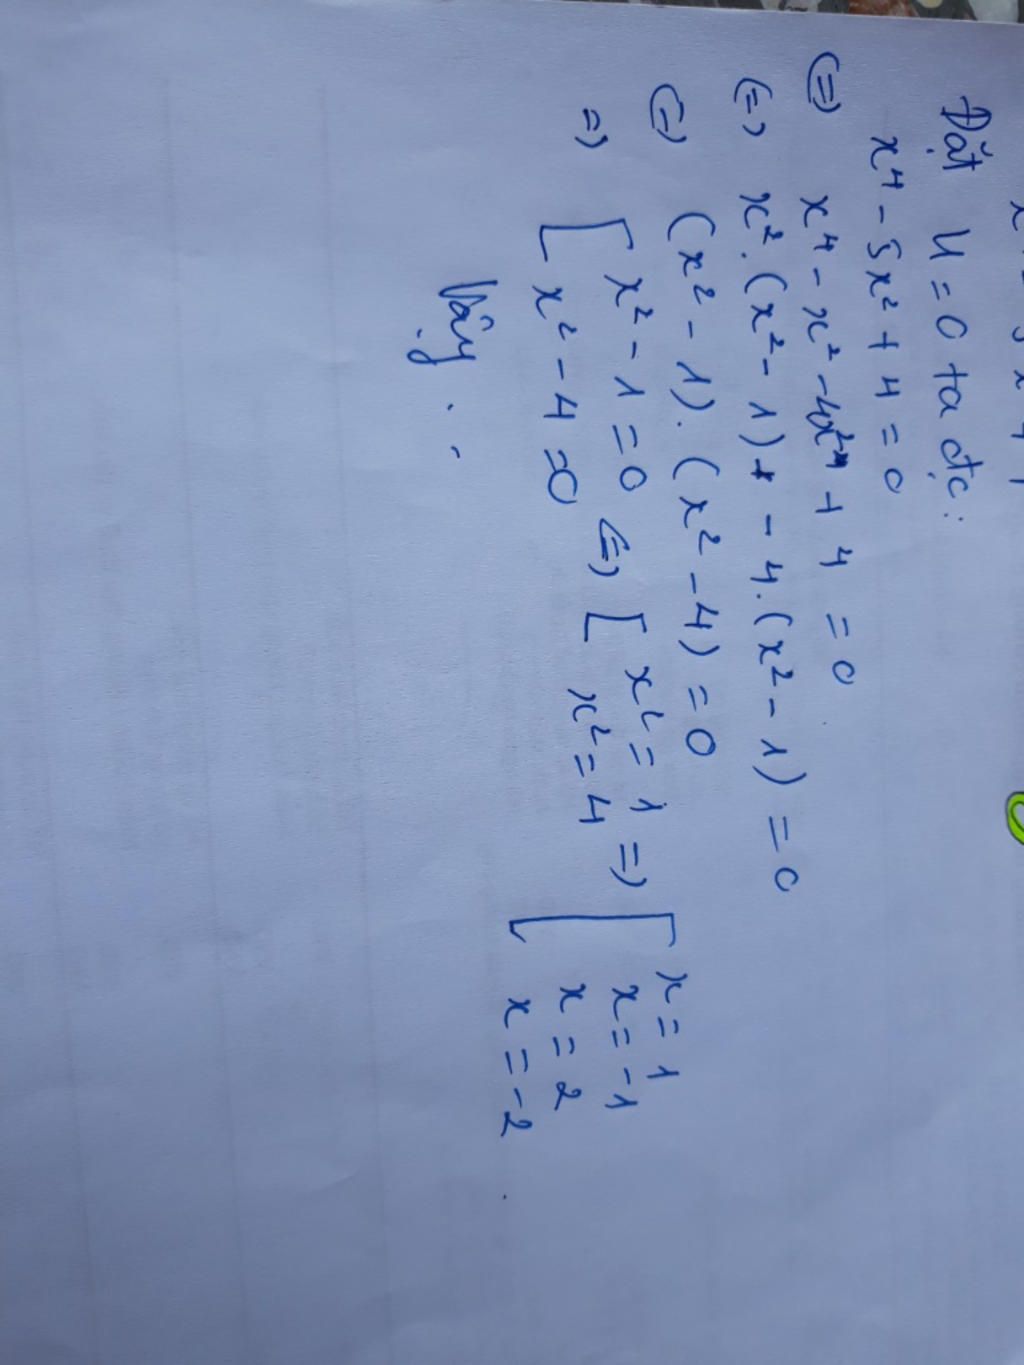 Đặt U = 0 ta đc:
x⁴ - 5x² + 4 = 0
(=) x⁴ - x² - 4x² + 4 = 0
(=) x². (x² - 1) - 4. (x² - 1) = 0
(=) (x² - 1). (x² - 4) = 0
=) [ x² - 1 = 0 (=) [ x² = 1 =) [ x = 1
x = -1
x² - 4 = 0 x² = 4 x = 2
x = -2
Vậy . .